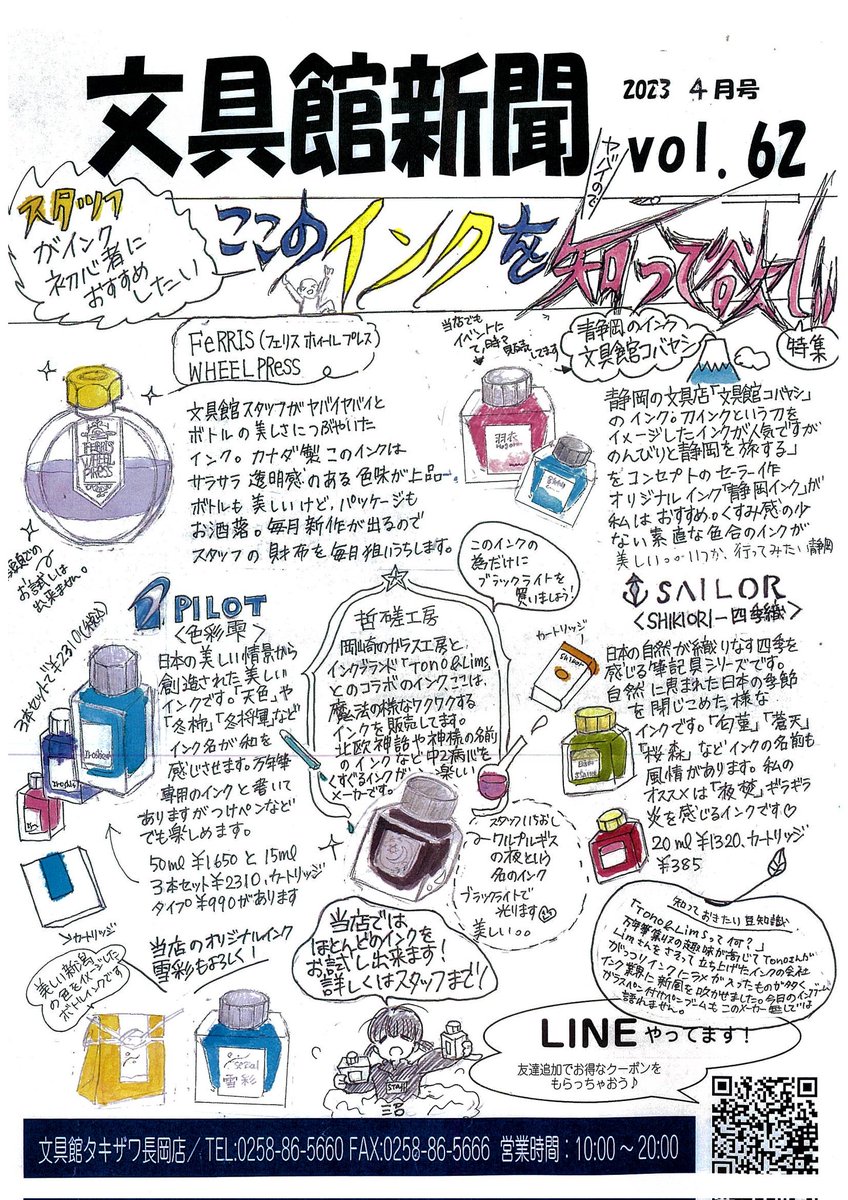 文具館新聞
2023 4月号
vol. 62
スタッフ
がインク
初心者に
おすすめ
したい
ヤバイので
ここのインクを知って欲しい
特集
FeRRIS (フェリス ホイール プレス)
WHEEL PRess
FERRIS
WHEEL
PRESS
文具館スタッフがヤバイヤバイと
ボトルの美しさにつぶやいた
インク。カナダ製このインクは
サラサラ透明感のある色味が上品
ボトルも美しいけど、パッケージも
お洒落。毎月新作が出るので
スタッフの財布を毎月狙いうちします。
お試しは
出来ません。
当店でも
イベントに
て、時々
販売してます
青静岡のインク
文具館コバヤシ
羽衣
静岡の文具店「文具館コバヤシ」
のインク。刀インクという刀を
イメージしたインクが人気ですが
のんびりと静岡を旅する」
をコンセプトのセーラー作
オリジナルインク「静岡インク」が
私はおすすめ。くすみ感の少
ない素直な色合のインクが
美しい。。いつか、行ってみたい静岡
PILOT
<色彩雫>
3本セットで¥2310(税込)
日本の美しい情景から
創造された美しい
インクです。「天色」や
「冬柿」「冬将軍」など
インク名が和を
感じさせます。万年筆
専用のインクと書いて
ありますがつけペンなど
でも楽しめます。
50ml ¥1650と15ml
3本セット¥2310、カートリッジ
タイプ¥990があります
カートリッジ
このインクの
為だけに
ブラックライトを
買いましょう!
哲磋工房
岡崎のガラス工房と、
インクブランド「Tono&Lims
とのコラボのインクここは、
魔法の様なワクワクする
インクを販売してます。
北欧神話や神様の名前
のインクなど中2病心を
くすぐるインクが楽しい
メーカーです。
スタッフいちおし
ワールプルギス
の夜という
名のインク
ブラックライトで
光ります♡
美しい。。
SAILOR
<SHIKIORI-四季織>
カートリッジ
日本の自然が織りなす四季を
感じる筆記具シリーズです。
自然に恵まれた日本の季節
を閉じこめた様な
インクです。「匂菫」「蒼天」
「桜森」などインクの名前も
風情があります。私の
オススメは「夜焚」ギラギラ
炎を感じるインクです♡
20ml ¥1320、カートリッジ
¥385
知っておきたい豆知識
「Tono&Limsって何?」
万年筆集りの趣味が高じてTonoさんが
Limさんをさそって立ち上げたインクの会社
がっつりインクにラメが入ったものが多く
インク業界に新風を吹かせました。今日のインクブーム
ガラスペン付けペンブームもこのメーカー無しでは
語れません。
美しい新潟
の色をイメージした
ボトルインクです
当店のオリジナルインク
雪彩もよろしく!
雪彩
当店では
ほとんどのインクを
お試し出来ます!
詳しくはスタッフまで!
STAFF
LINEやってます!
友達追加でお得なクーポンを
もらっちゃおう♪
文具館タキザワ長岡店/ TEL:0258-86-5660 FAX:0258-86-5666 営業時間:10:00～20:00